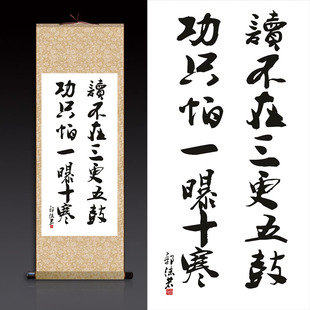 讀不在三更五鼓
功只怕一曝十寒
郭沫若
讀不在三更五鼓
功只怕一曝十寒
郭沫若